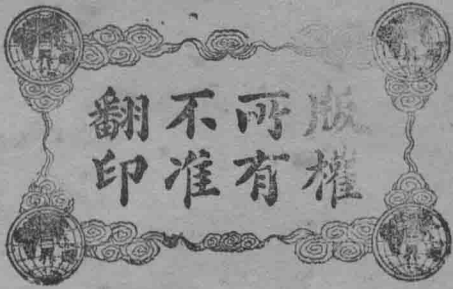 版權
所有
不准
翻印